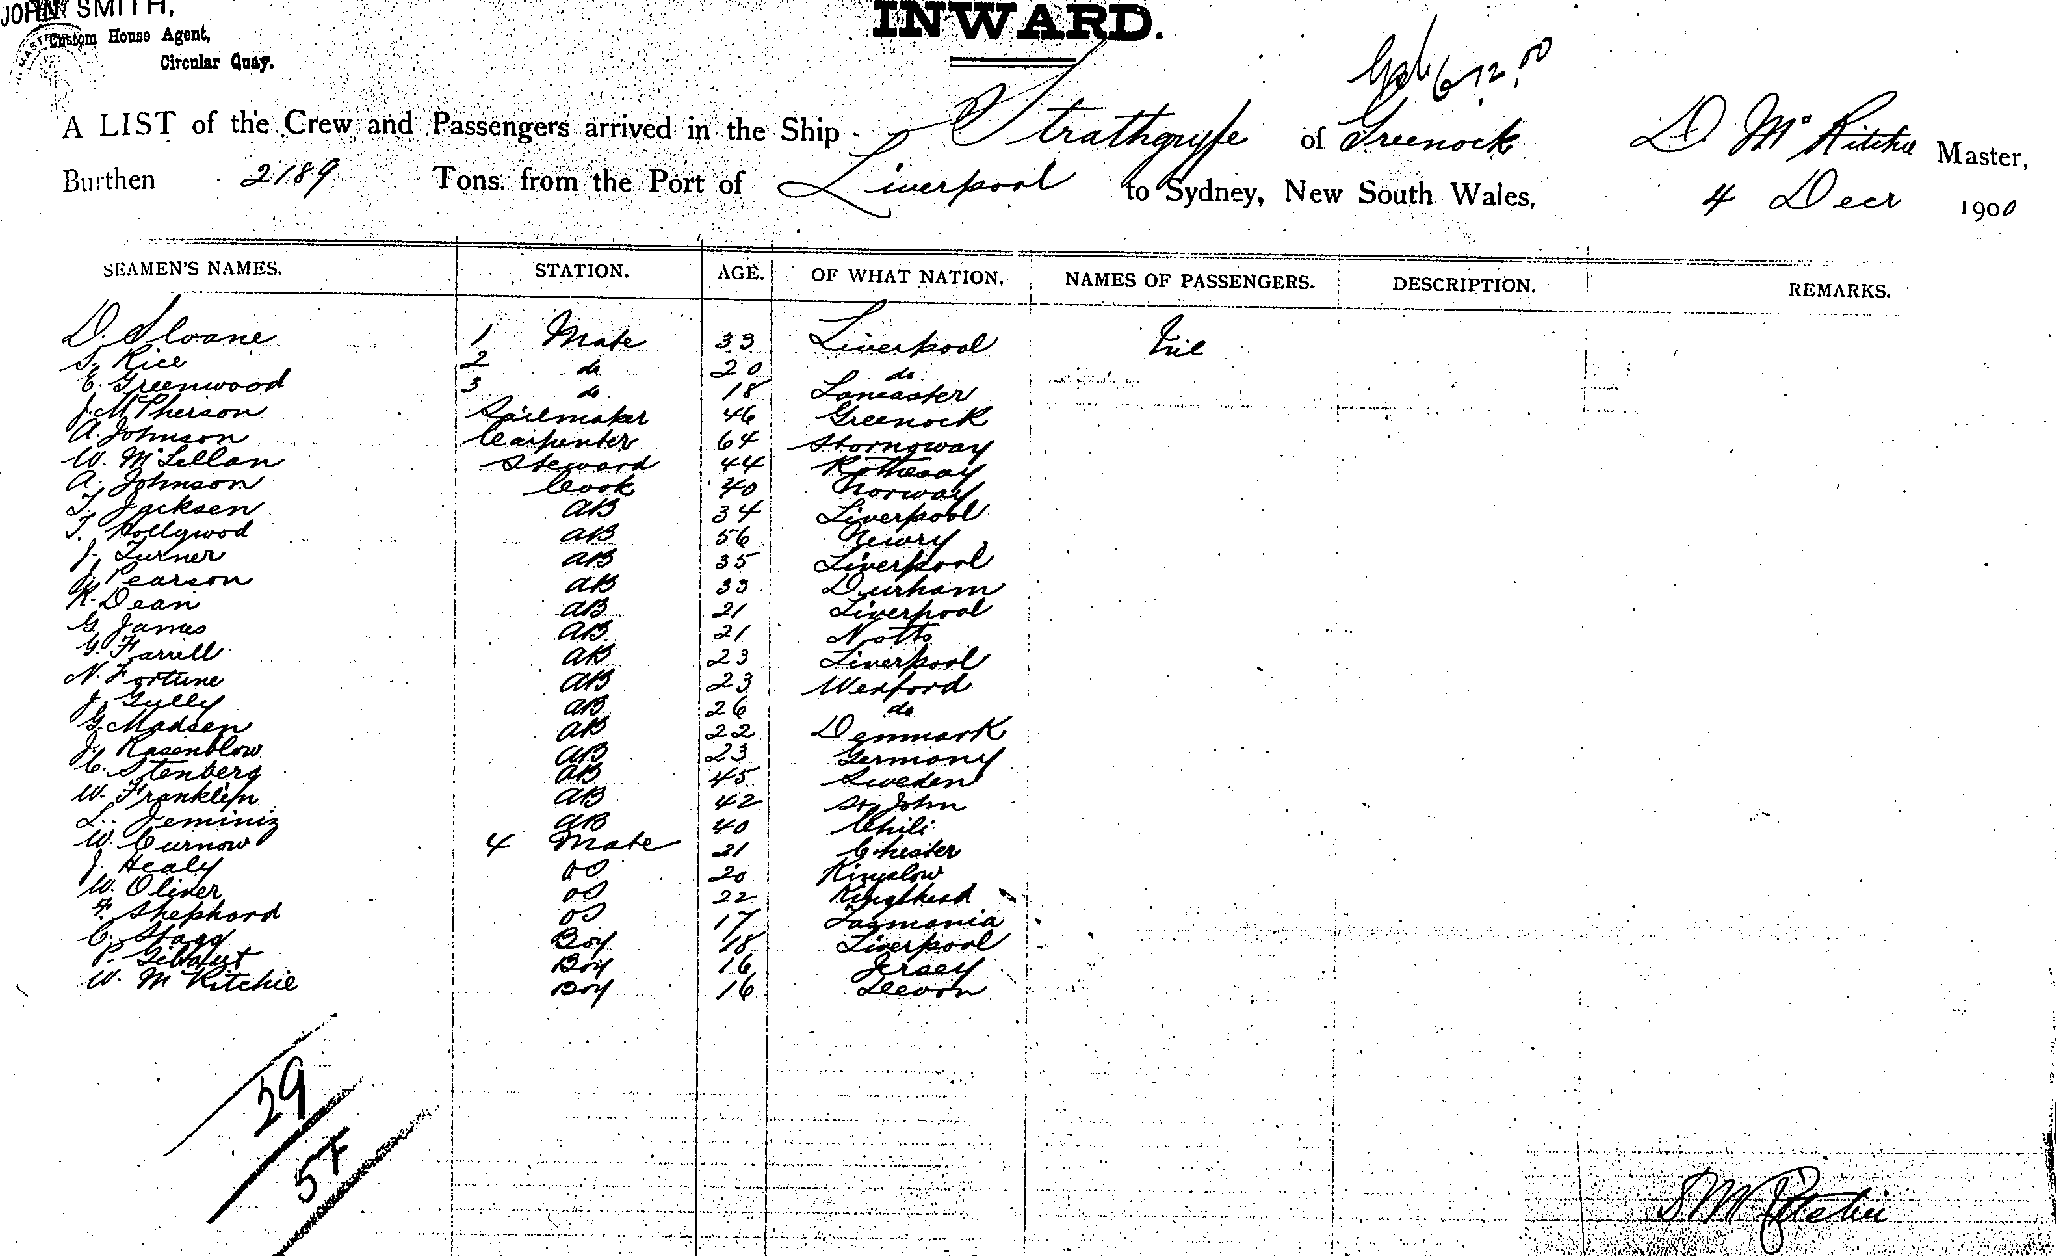 JOHN SMITH,
Custom House Agent,
Circular Quay.
INWARD.
6.12.00
A LIST of the Crew and Passengers arrived in the Ship Strathgryfe of Greenock D McRitchie Master,
Burthen 2189 Tons from the Port of Liverpool to Sydney, New South Wales, 4 Decr 1900
SEAMEN'S NAMES. STATION. AGE. OF WHAT NATION. NAMES OF PASSENGERS. DESCRIPTION. REMARKS.
D. Sloane 1 Mate 33 Liverpool Nil
S. Rice 2 do 20 do
E. Greenwood 3 do 18 Lancaster
J. McPherson Sailmaker 46 Greenock
A. Johnson Carpenter 64 Stornoway
W. McLellan Steward 44 Rothesay
A. Johnson Cook 40 Norway
T. Jacksen AB 34 Liverpool
T. Hollywood AB 56 Newry
J. Turner AB 35 Liverpool
J. Pearson AB 33 Durham
R. Dean AB 21 Liverpool
G. James AB 21 Notts
G. Farrell AB 23 Liverpool
N. Fortune AB 23 Wexford
J. Gully AB 26 do
G. Madsen AB 22 Denmark
J. Rasenblow AB 23 Germany
C. Stenberg AB 45 Sweden
W. Franklin AB 42 St John
L. Jeminiz AB 40 Chili
W. Curnow 4 Mate 21 Chester
J. Healy OS 20 Kingslow
W. Oliver OS 22
F. Shephard OS 17 Tasmania
C. Stagg Boy 18 Liverpool
P. Boy 16 Jersey
W. McRitchie Boy 16 Devon
29
57
D McRitchie